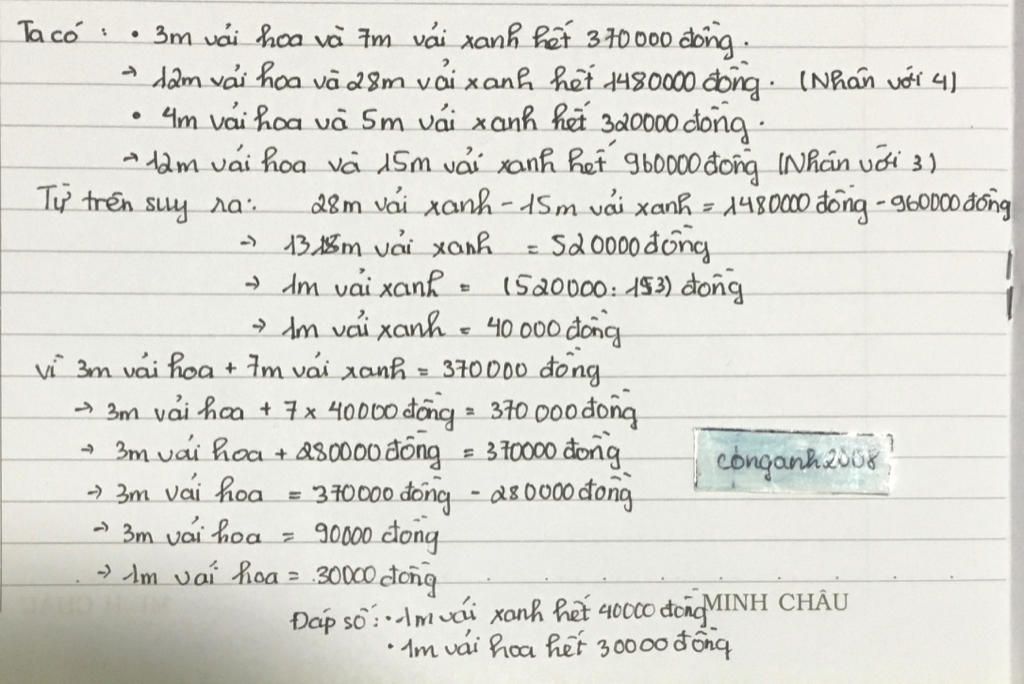 Ta có : • 3m vải hoa và 7m vải xanh hết 370000 đồng.
→ 12m vải hoa và 28m vải xanh hết 1480000 đồng. (Nhân với 4)
• 4m vải hoa và 5m vải xanh hết 320000 đồng.
→ 12m vải hoa và 15m vải xanh hết 960000 đồng (Nhân với 3)
Từ trên suy ra: 28m vải xanh - 15m vải xanh = 1480000 đồng - 960000 đồng
→ 13m vải xanh = 520000 đồng
→ 1m vải xanh = (520000 : 13) đồng
→ 1m vải xanh = 40 000 đồng
Vì 3m vải hoa + 7m vải xanh = 370000 đồng
→ 3m vải hoa + 7 x 40000 đồng = 370 000 đồng
→ 3m vải hoa + 280000 đồng = 370000 đồng
conganh2008
→ 3m vải hoa = 370000 đồng - 280000 đồng
→ 3m vải hoa = 90000 đồng
→ 1m vải hoa = 30000 đồng
MINH CHÂU
Đáp số: • 1m vải xanh hết 40000 đồng
• 1m vải hoa hết 30000 đồng